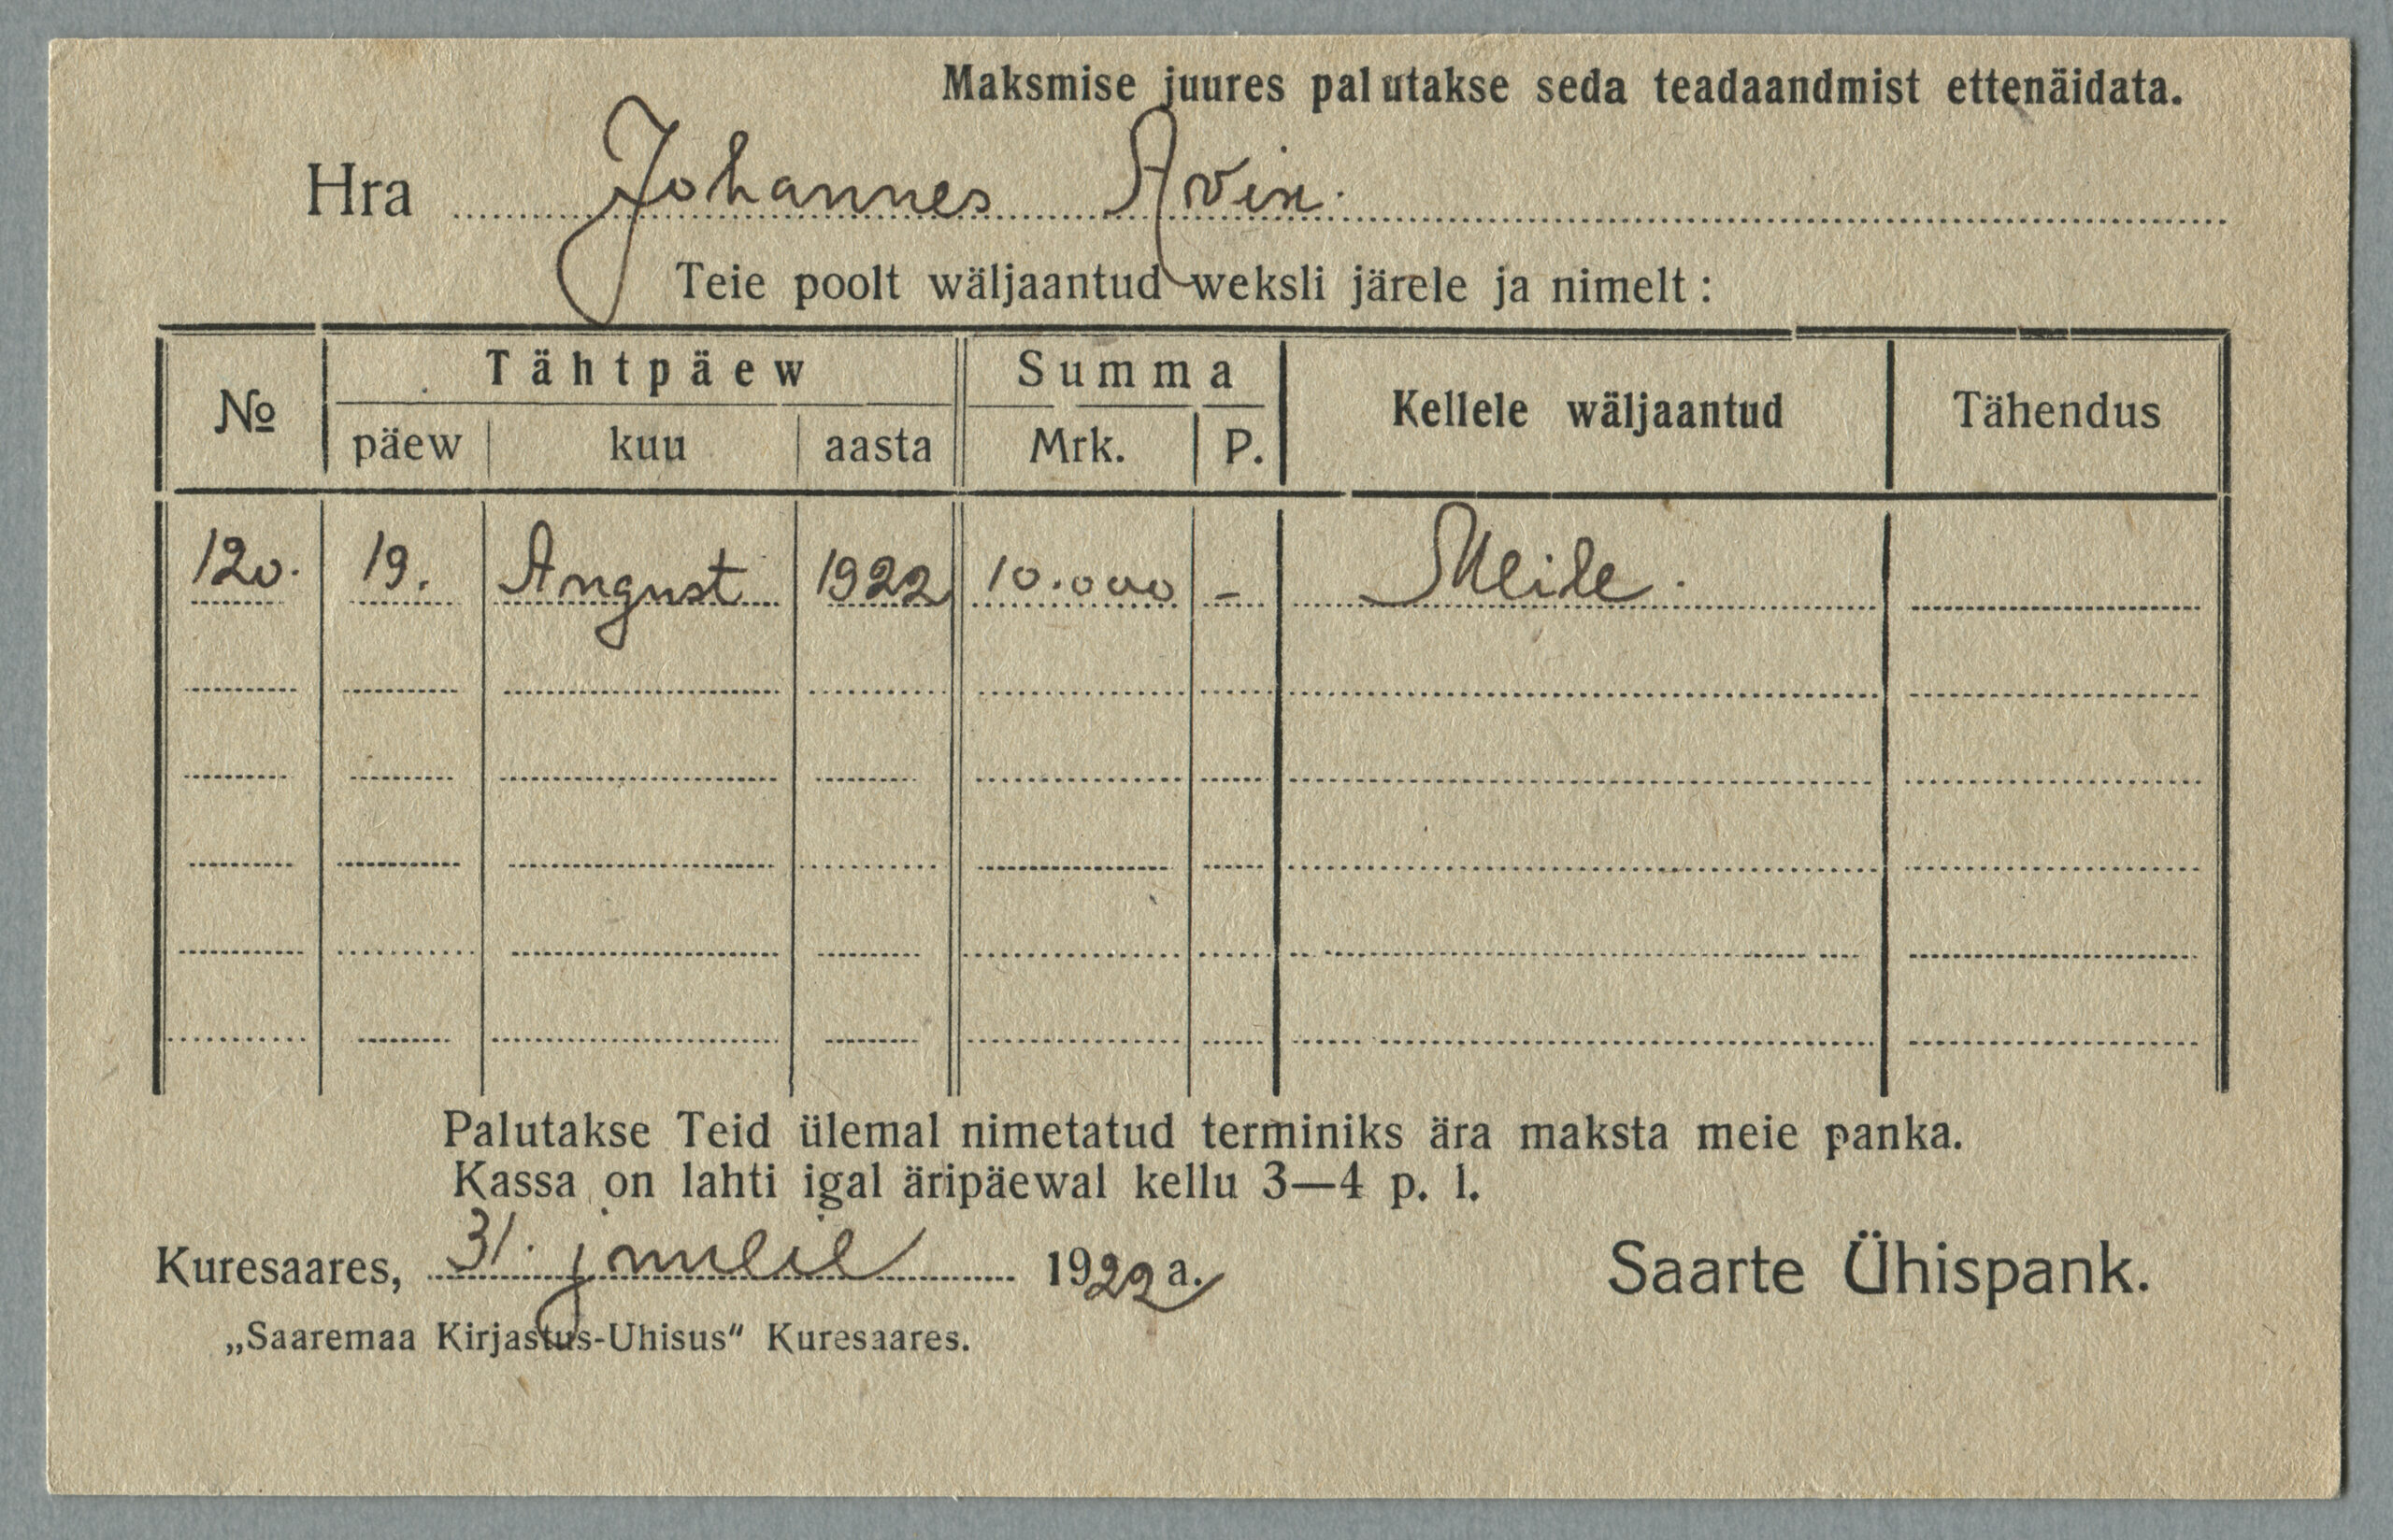 Maksmise juures palutakse seda teadaandmist ettenäidata.
Hra Johannes Avix.
Teie poolt wäljaantud weksli järele ja nimelt:
№ Tähtpäew Summa Kellele wäljaantud Tähendus
päew kuu aasta Mrk. P.
120. 19. August 1922 10.000 – Meile.
Palutakse Teid ülemal nimetatud terminiks ära maksta meie panka.
Kassa on lahti igal äripäewal kellu 3—4 p. l.
Kuresaares, 31. juulil 1922 a. Saarte Ühispank.
„Saaremaa Kirjastus-Uhisus" Kuresaares.